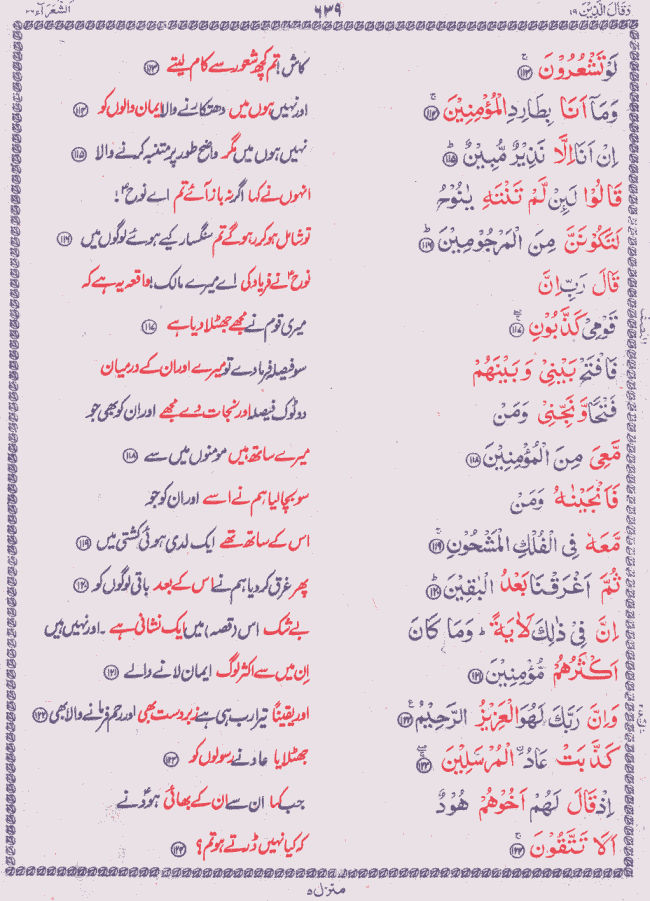 وَقَالَ الَّذِيْنَ ١٩ ٦٣٩ الشُّعَرَآء ٢٦
لَوْ تَشْعُرُوْنَ ﴿١١٣﴾ کاش! تم کچھ شعور سے کام لیتے ﴿١١٣﴾
وَمَآ اَنَا بِطَارِدِ الْمُؤْمِنِيْنَ ﴿١١٤﴾ اور نہیں ہوں میں دھتکارنے والا ایمان والوں کو ﴿١١٤﴾
اِنْ اَنَا اِلَّا نَذِيْرٌ مُّبِيْنٌ ﴿١١٥﴾ نہیں ہوں میں مگر واضح طور پر متنبہ کرنے والا ﴿١١٥﴾
قَالُوْا لَىِٕنْ لَّمْ تَنْتَهِ يٰنُوْحُ انہوں نے کہا اگر نہ باز آئے تم اے نوحؑ!
لَتَكُوْنَنَّ مِنَ الْمَرْجُوْمِيْنَ ﴿١١٦﴾ تو شامل ہو کر رہو گے تم سنگسار کیے ہوئے لوگوں میں ﴿١١٦﴾
قَالَ رَبِّ اِنَّ نوحؑ نے فریاد کی اے میرے مالک! واقعہ یہ ہے کہ
قَوْمِيْ كَذَّبُوْنِ ﴿١١٧﴾ میری قوم نے مجھے جھٹلا دیا ہے ﴿١١٧﴾
فَافْتَحْ بَيْنِيْ وَ بَيْنَهُمْ سو فیصلہ فرما دے تو میرے اور ان کے درمیان
فَتْحًا وَّ نَجِّنِيْ وَمَنْ دو ٹوک فیصلہ اور نجات دے مجھے اور ان کو بھی جو
مَّعِيَ مِنَ الْمُؤْمِنِيْنَ ﴿١١٨﴾ میرے ساتھ ہیں مومنوں میں سے ﴿١١٨﴾
فَاَنْجَيْنٰهُ وَمَنْ سو بچا لیا ہم نے اسے اور ان کو جو
مَّعَهٗ فِي الْفُلْكِ الْمَشْحُوْنِ ﴿١١٩﴾ اس کے ساتھ تھے ایک لدی ہوئی کشتی میں ﴿١١٩﴾
ثُمَّ اَغْرَقْنَا بَعْدُ الْبٰقِيْنَ ﴿١٢٠﴾ پھر غرق کر دیا ہم نے اس کے بعد باقی لوگوں کو ﴿١٢٠﴾
اِنَّ فِيْ ذٰلِكَ لَاٰيَةً ۭ وَمَا كَانَ بے شک اس (قصہ) میں ایک نشانی ہے ۔ اور نہیں ہیں
اَكْثَرُهُمْ مُّؤْمِنِيْنَ ﴿١٢١﴾ ان میں سے اکثر لوگ ایمان لانے والے ﴿١٢١﴾
وَاِنَّ رَبَّكَ لَهُوَ الْعَزِيْزُ الرَّحِيْمُ ﴿١٢٢﴾ اور یقیناً تیرا رب ہی ہے زبردست بھی اور رحم فرمانے والا بھی ﴿١٢٢﴾
كَذَّبَتْ عَادُۨ الْمُرْسَلِيْنَ ﴿١٢٣﴾ جھٹلایا عاد نے رسولوں کو ﴿١٢٣﴾
اِذْ قَالَ لَهُمْ اَخُوْهُمْ هُوْدٌ جب کہا ان سے ان کے بھائی ہودؑ نے
اَلَا تَتَّقُوْنَ ﴿١٢٤﴾ کہ کیا نہیں ڈرتے ہو تم؟ ﴿١٢٤﴾
منزل ٥